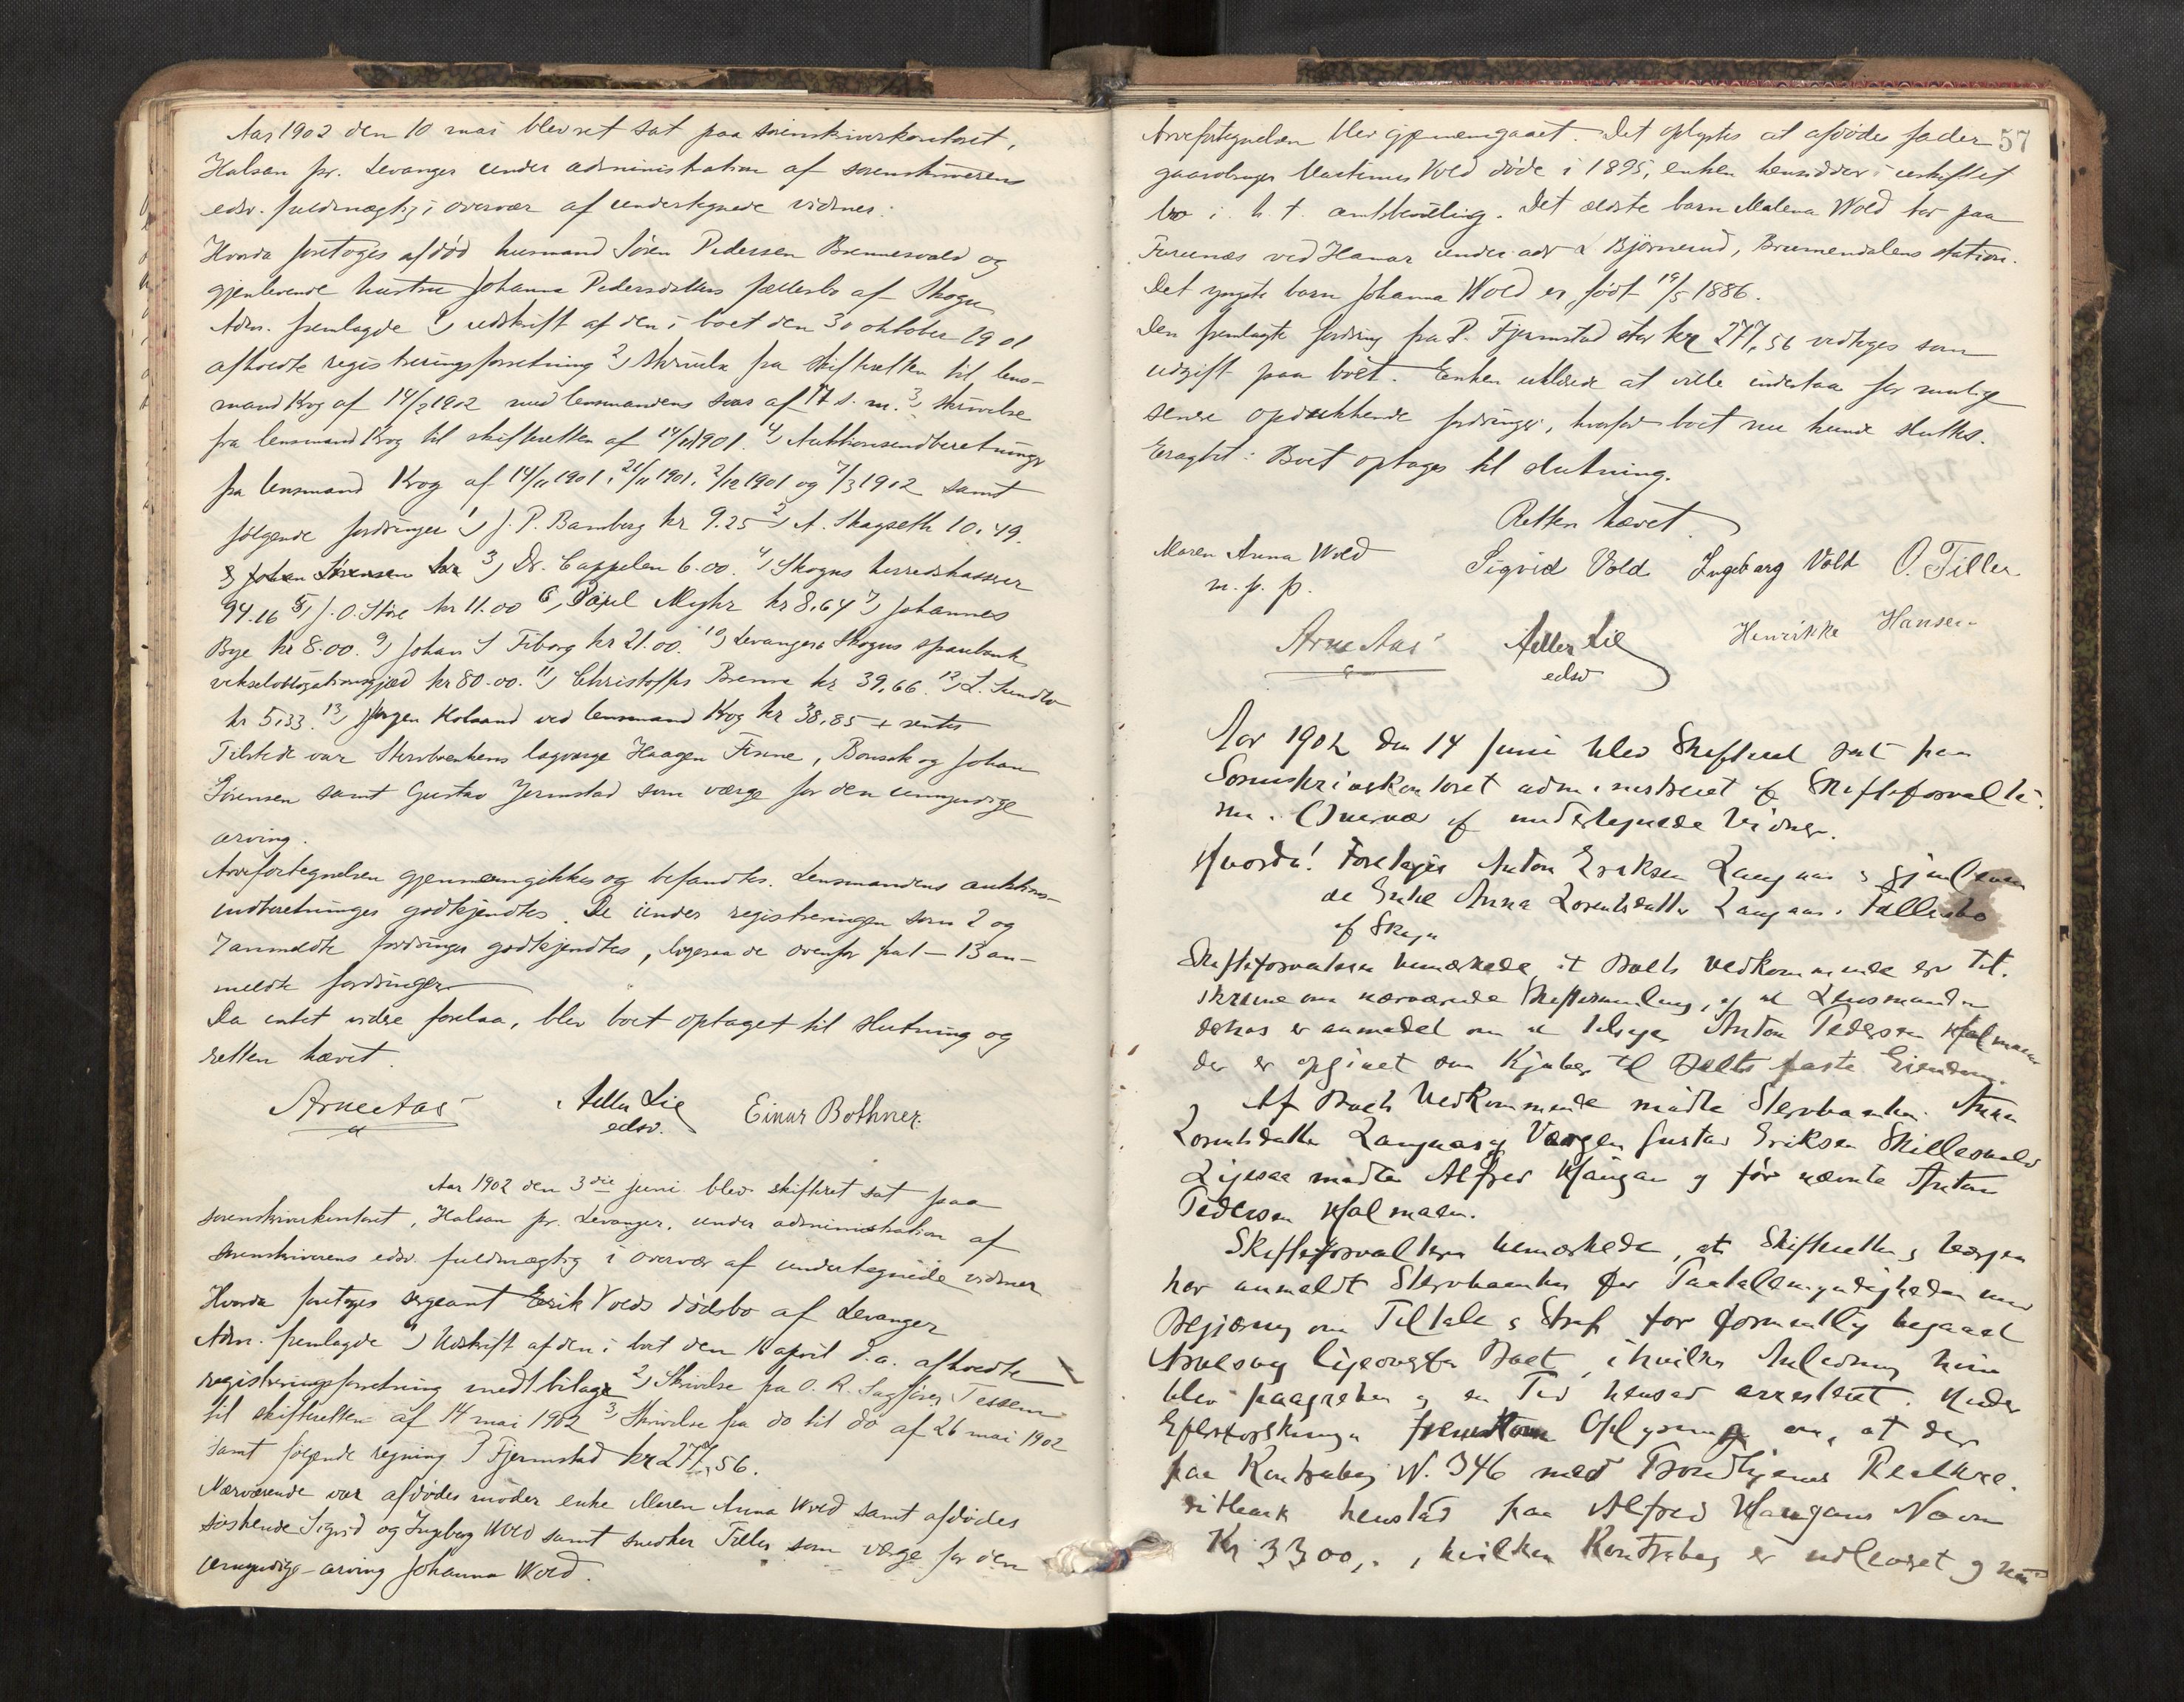 Aar 1902 den 10 mai blev ret sat paa sorenskriverkontoret,
Halsan pr. Levanger under administration af sorenskriverens
edsv. fuldmægtig i overvær af undertegnede vidner:
Hvorda foretoges afdød husmand Søren Pedersen Brennesvald og
gjenlevende hustru Johanna Pedersdatters fællesbo af Skogn
Adm. fremlagde 1) udskrift af den i boet den 30 oktober 1901
afholdte registreringsforretning 2) skrivelse fra skifteretten til lens-
mand Krog af 14/3 1902 med lensmandens svar af 17 s. m. 3) skrivelse
fra lensmand Krog til skifteretten af 14/11 1901. 4) Auktionsindberetninger
fra lensmand Krog af 14/11 1901, 21/11 1901, 2/12 1901 og 7/3 1902 samt
følgende fordringer 1) J. P. Bamberg kr 9.25 2) A. Skagseth 10.49.
3) Johan Sørensen kr 3) Dr. Cappelen 6.00. 4) Skogns herredskasserer
94.16 5) J. O. Støre kr 11.00 6) Myhr kr 8.64 7) Johannes
Bye kr 8.00. 9) Johan S Fiborg kr 21.00. 10) Levanger & Skogns sparebank
vekselobligationsgjæld kr 80.00. 11) Christoffer Brenne kr 39,66. 12) L. Sundbo
kr 5,33. 13) Jørgen Holsand ved lensmand Krog kr 38,85 + renter
Tilstede var Stervboenkens lagværge Haagen Finne, Bonsak og Johan
Sørensen samt Gustav Jermstad som værge for den umyndige
arving.
Arvefortegnelsen gjennemgikkes og befandtes. Lensmandens auktions-
indberetninger godkjendtes. De under registreringen som 2 og
7 anmeldte fordringer godkjendtes, ligesaa de ovenfor fra 1 – 13 an-
meldte fordringer.
Da intet videre forelaa, blev boet optaget til slutning og
retten hævet.
Arne Aas Aller Lie Einar Bothner.
edsv.
Aar 1902 den 3die juni blev skifteret sat paa
sorenskriverkontoret, Halsan pr. Levanger, under administration af
sorenskriverens edsv. fuldmægtig i overvær af undertegnede vidner
Hvorda foretoges sergeant Erik Volds dødsbo af Levanger
Adm. fremlagde 1) Udskrift af den i boet den 16 april d. a. afholdte
registreringsforretning med 1 bilage 2) Skrivelse fra O. R. Sagfører Tessem
til skifteretten af 14 mai 1902 3) Skrivelse fra do til do af 26 mai 1902
samt følgende regning P Fjermstad kr 277,56.
Nærværende var afdødes moder enke Maren Anna Wold samt afdødes
søskende Sigvid og Ingeborg Wold samt snedker Tiller som værge for den
umyndige arving Johanna Wold.
57
Arvefortegnelsen blev gjennemgaaet. Det oplystes at afdødes fader
gaardbruger Martinus Vold døde i 1895, enken hensidder i uskiftet
bo i h. t. amtsbevilling. Det ældste barn Malena Wold bor paa
Furunæs ved Hamar under adr. Bjørnerud, Brumendalens station.
Det yngste barn Johanna Wold er født 19/5 1886.
Den fremlagte fordring fra P. Fjermstad stor kr 277,56 vedtoges som
udgift paa boet. Enken erklærede at ville indestaa for mulig
senere opdukkende fordringer, hvorfor boet nu kunde sluttes.
Eragtet: Boet optages til slutning.
Retten hævet.
Maren Anna Wold Sigvid Vold Ingeborg Vold O. Tiller
m. p. p.
Arne Aas Aller Lie Henrikke Hansen
edsv
Aar 1902 den 14 Juni blev Skifteret sat paa
Sorenskriverkontoret administreret af Skifteforvalte-
ren. Overvær af undertegnede Vidner.
Hvorda! Foretages Anton Eriksen Langaas & gjenleven
de Enke Anna Lorentsdatter Langaas' Fællesbo
af Skogn
Skifteforvalteren bemærkede, at Boets Vedkommende er til-
skrevne om nærværende Skiftesamling, og at Lensmanden
er anmodet om at tilsige Anton Pedersen Hjalmaren
der er opgivet som Kjøber til Boets faste Eiendom.
Af Boets Vedkommende mødte Stervboenken Anna
Lorentsdatter Langaas og Værgen Gustav Eriksen Skillesvald
Ligesaa mødte Alfred Haugan og før nævnte Anton
Pedersen Hjalmaren.
Skifteforvalteren bemærkede, at Skifteretten & Værgen
har anmeldt Stervboenken for Paatalemyndigheden med
Begjæring om Tiltale & Straf for formentlig begaaet
Arvesvig ligeoverfor Boet, i hvilken Anledning hun
blev paagreben og en Tid hensad arresteret. Under
Efterforskningen fremkom Oplysning om, at der
paa Kontrabog N. 346 med Trondhjems Realkre-
ditbank henstod paa Alfred Haugans Navn
Kr 3300,-, hvilken Kontrabog er udleveret og nu